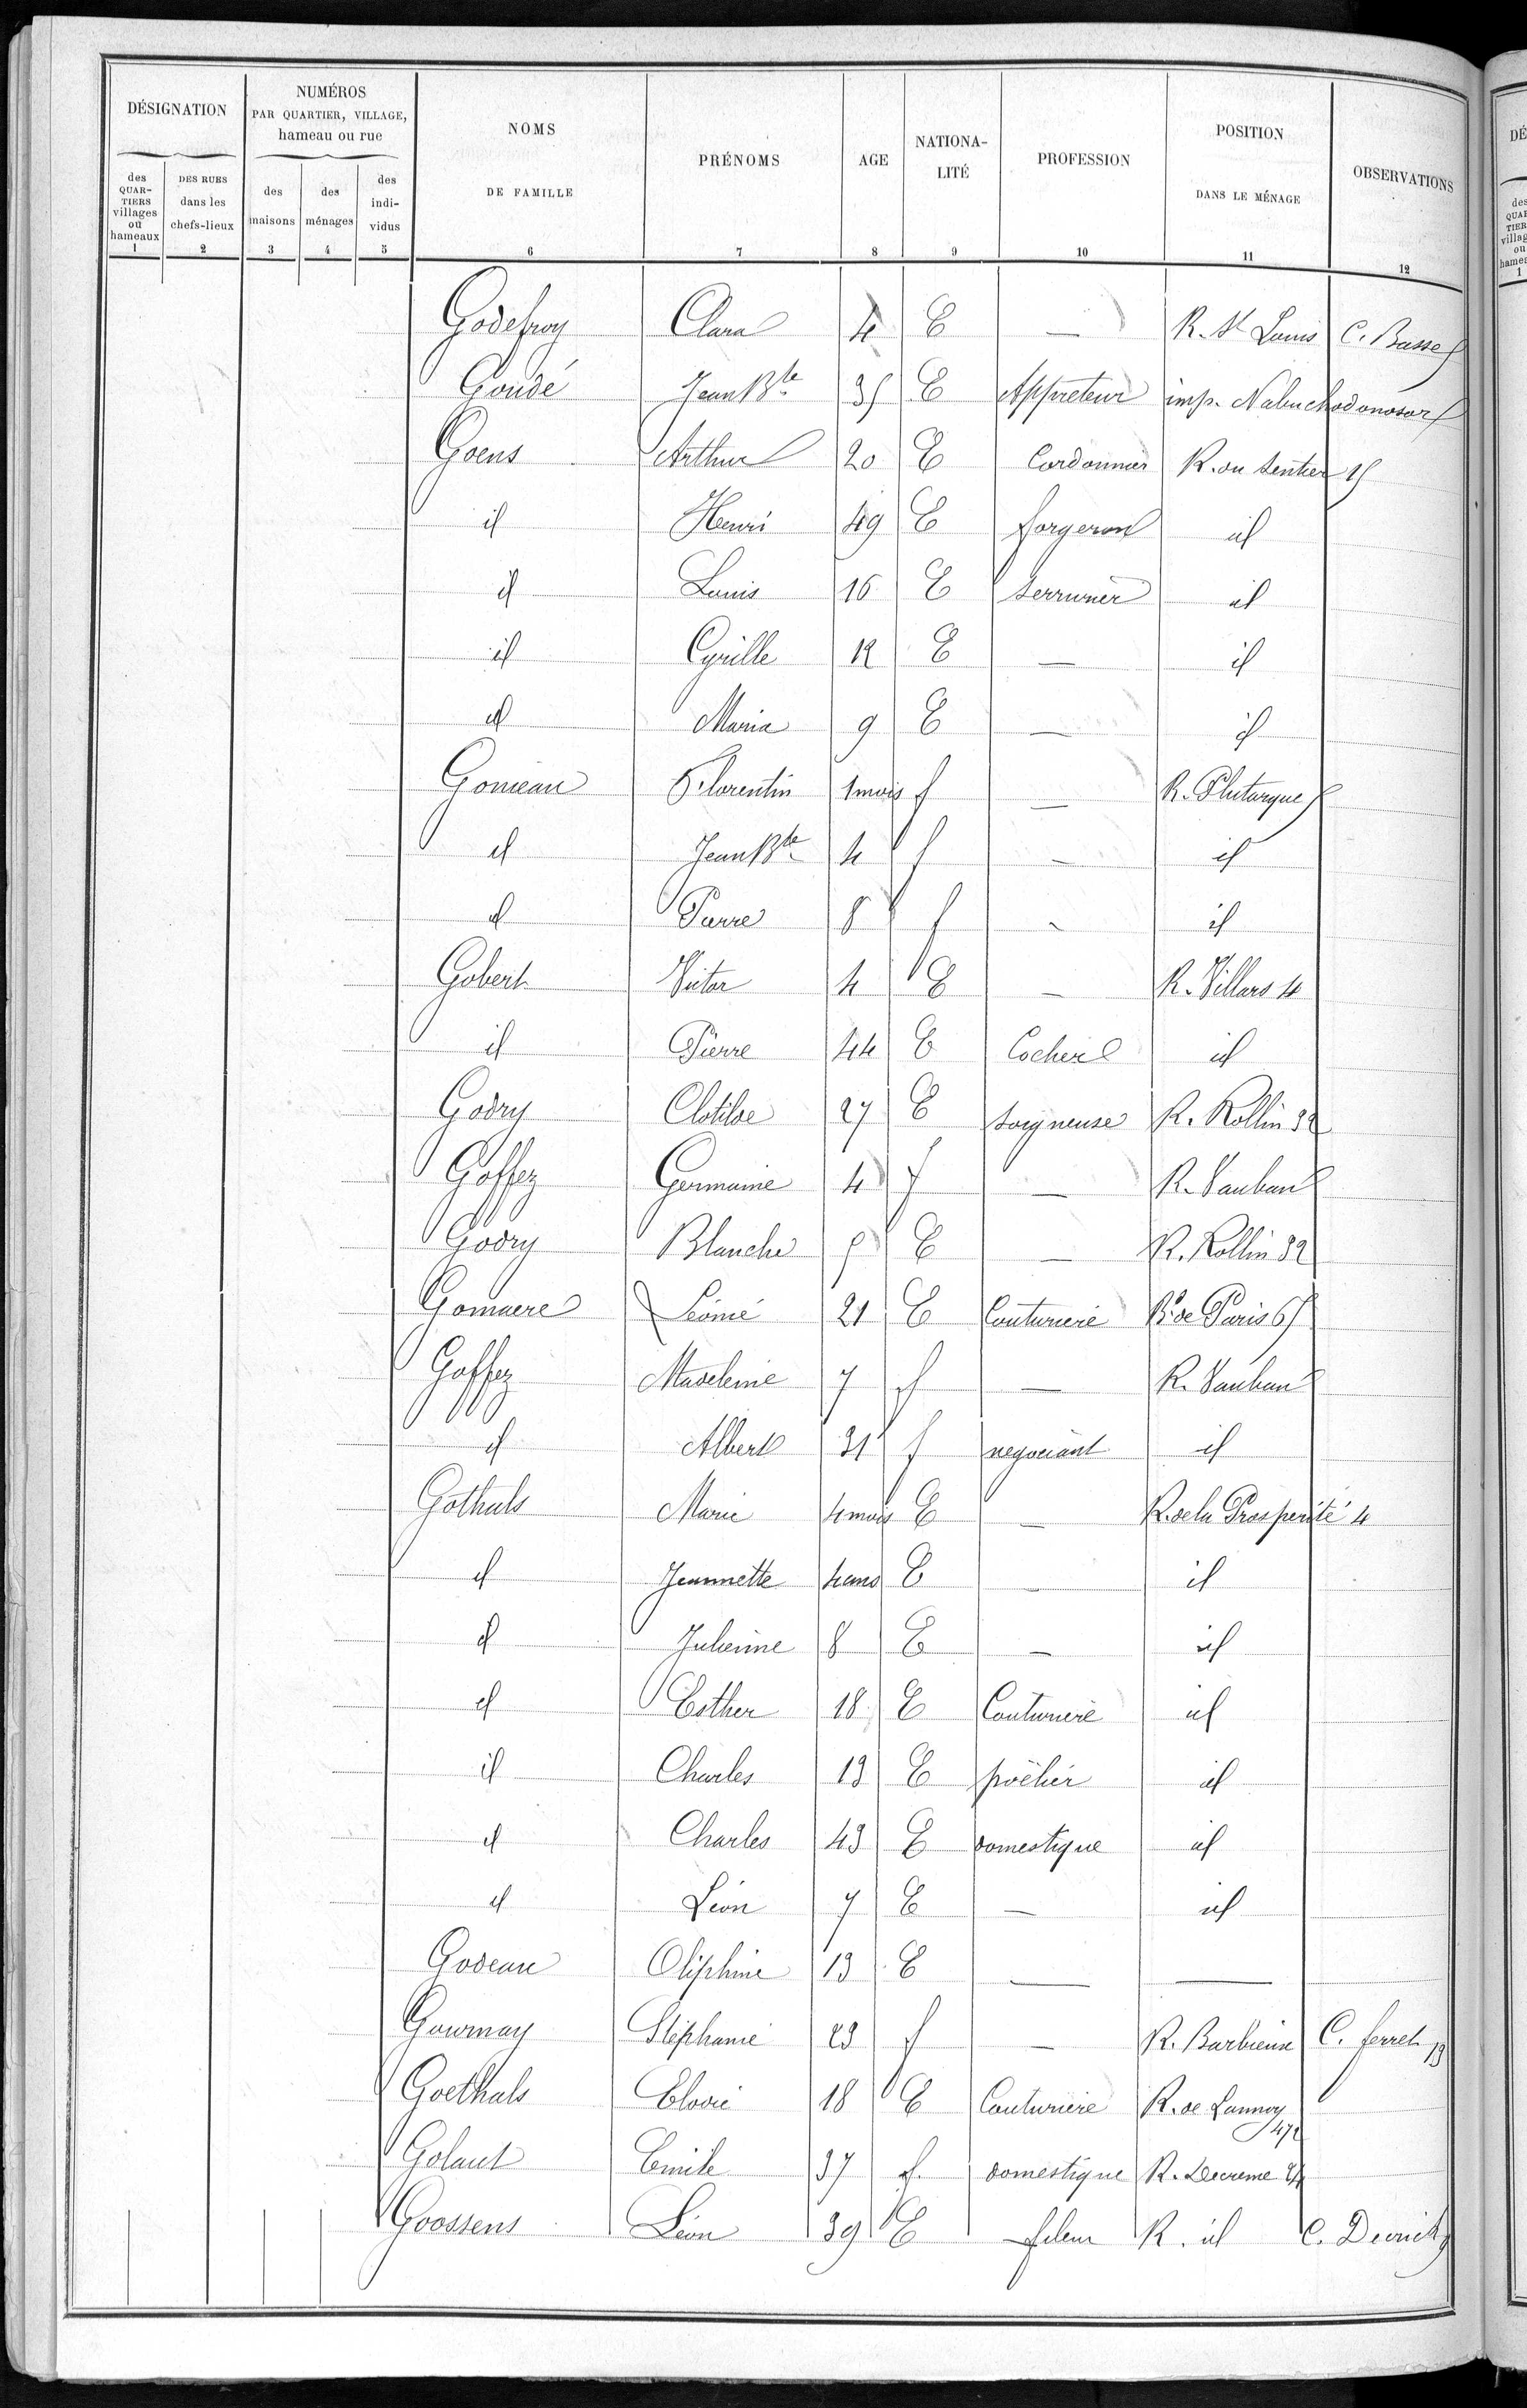 DÉSIGNATION
NUMÉROS
PAR QUARTIER, VILLAGE,
hameau ou rue
NOMS
DE FAMILLE
PRÉNOMS
AGE
NATIONA-
LITÉ
PROFESSION
POSITION
DANS LE MÉNAGE
OBSERVATIONS
des
QUAR-
TIERS
villages
ou
hameaux
DES RUES
dans les
chefs-lieux
des
maisons
des
ménages
des
indi-
vidus
1 2 3 4 5 6 7 8 9 10 11 12
Godefroy Clara 4 E — R. St Louis C. Busse
Goudé Jean Bte 35 E Appreteur imp. Nabuchodonosor
Goens Arthur 20 E Cordonnier R. du Sentier 15
id Henri 49 E forgeron id
id Louis 16 E serrurier id
id Cyrille 12 E — id
id Maria 9 E — id
Gonieau Florentin 1 mois f — R. Plutarque
id Jean Bte 4 f — id
id Pierre 8 f — id
Gobert Victor 4 E — R. Villars 4
id Pierre 44 E Cocher id
Godry Clotilde 27 E soigneuse R. Rollin 32
Goffez Germaine 4 f — R. Vauban
Godry Blanche 5 E — R. Rollin 32
Gomaere Léonie 21 E Couturière Bd de Paris 65
Goffez Madeleine 7 f — R. Vauban
id Albert 31 f negociant id
Gothals Marie 4 mois E — R. de la Prosperité 4
id Jeannette 4 ans E — id
id Julienne 8 E — id
id Esther 18 E Couturière id
id Charles 13 E poëlier id
id Charles 43 E domestique id
id Léon 7 E — id
Godeau Oliphine 13 E — —
Gournay Stéphanie 23 f — R. Barbieux C. ferret 13
Goethals Elodie 18 E Couturière R. de Lannoy
472
Golaut Emile 37 f. domestique R. Decreme 24
Goossens Léon 39 E fileur R. id